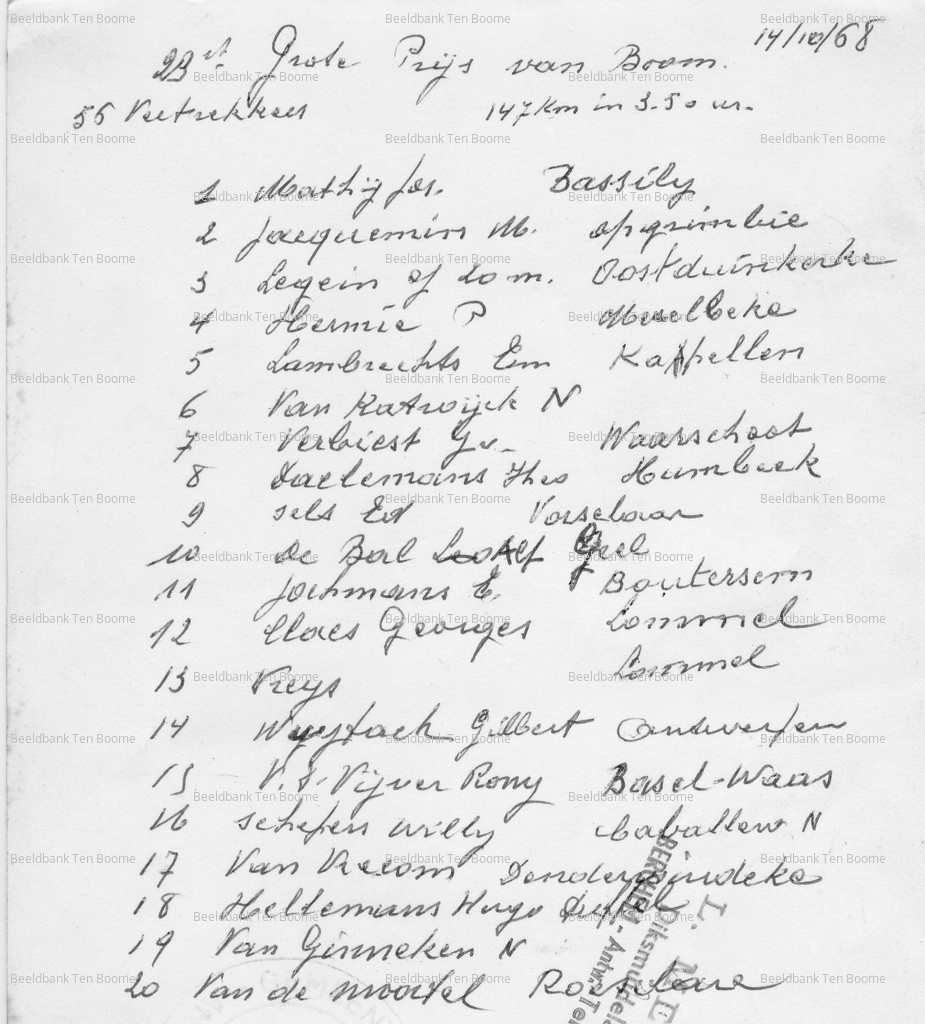 14/10/68
23st Grote Prijs van Boom.
56 Vertrekkers 147 Km in 3.50 ur.
1 Mathij Jos. Bassily
2 Jacquemin M. opgrimbie
3 Legein of Lom. Oostduinkerke
4 Hermie P Merelbeke
5 Lambrechts Em Kappellen
6 Van Katwijck N
7 Verbiest Gu. Waarschoot
8 Daelemans Theo Humbeek
9 sels Ed Vorselaar
10 De Bal Leo Alf Geel
11 Jochmans E. Boutersem
12 Claes Georges Lommel
13 Vreys Lommel
14 Wuytack Gilbert Antwerpen
15 V.d. Vijver Rony Basel-Waas
16 schepers willy Caballero N
17 Van Vrecom Denderwindeke
18 Heltemans Hugo Duffel
19 Van Ginneken N
20 Van de moortel Roeselare
BERCHEM - Antw.
Diksmuidels
Beeldbank Ten Boome